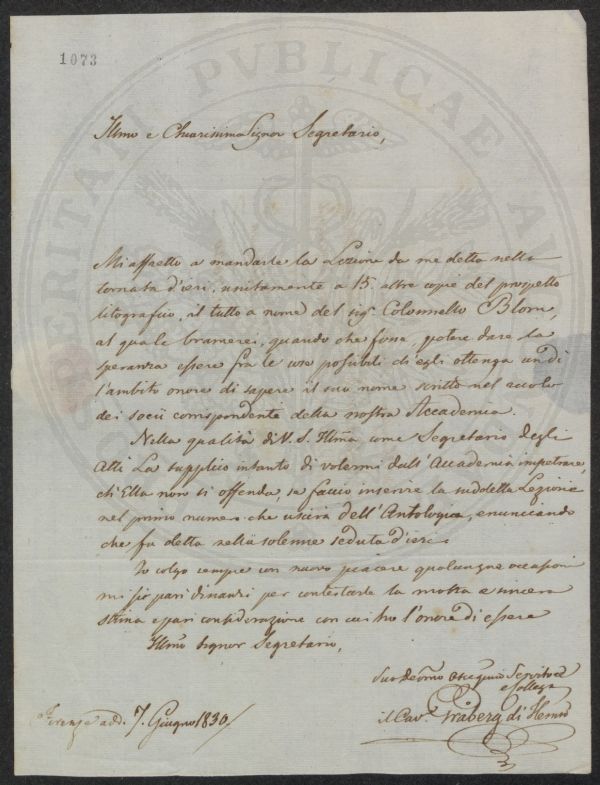 1073
Illmo e Chiarissimo Signor Segretario,
Mi affretto a mandarle la Lezione da me detta nella
tornata d'ieri, unitamente a 15. altre copie del prospetto
litografico, il tutto a nome del sig. Colonnello Blom,
al quale bramerei, quando che fosse, potere dare la
speranza essere fra le cose possibili ch'egli ottenga un dì
l'ambito onore di sapere il suo nome scritto nel
dei socii corrispondenti della nostra Accademia.
Nella qualità di V. S. Illma come Segretario degli
Atti La supplico intanto di volermi dall'Accademia impetrare,
ch'Ella non si offenda, se faccio inserire la sudetta Lezione
nel primo numero che uscirà dell'Antologia, enunciando
che fu detta nella solenne seduta d'ieri.
Io colgo sempre con nuovo piacere qualunque occasione
mi si pari dinanzi per contestarle la molta e sincera
stima e pari considerazione con cui ho l'onore di essere
Illmo Signor Segretario,
Suo Devmo Servitore
e Collega
il Cav. Gråberg di Hemsö
Firenze addì 7. Giugno 1830
PERITAN PVBLICAE